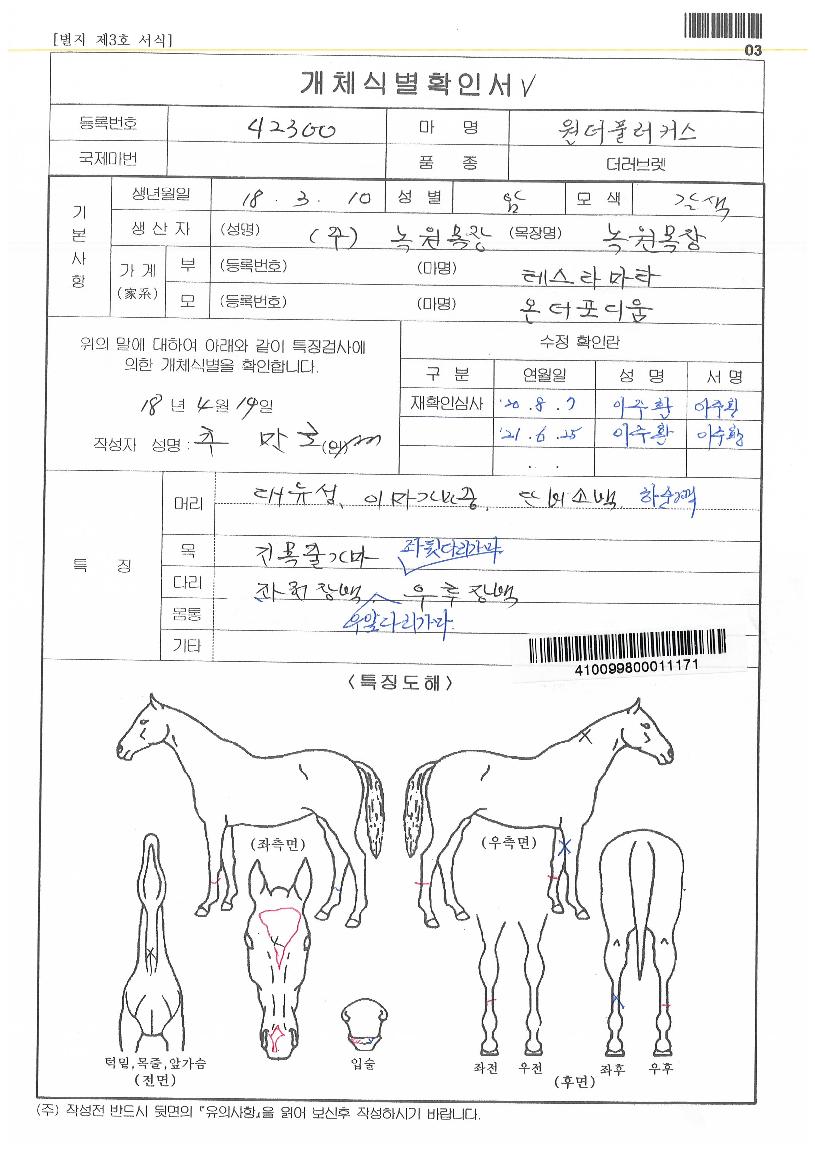 [별지 제3호 서식]
03
개체식별확인서 √
등록번호 42300 마 명 원더풀러커스
국제마번 품 종 더러브렛
기본사항
생년월일 18 . 3 . 10 성 별 암 모 색 갈색
생 산 자 (성명) (주) 녹원목장 (목장명) 녹원목장
가 계 (家系)
부 (등록번호) (마명) 테스타마타
모 (등록번호) (마명) 온더포디움
위의 말에 대하여 아래와 같이 특징검사에
의한 개체식별을 확인합니다.
18 년 4 월 19일
작성자 성명 : 주 만 호 (인)
수정 확인란
구 분 연월일 성 명 서 명
재확인심사 '20 . 8 . 7 이주환 이주환
'21 . 6 . 25 이주환 이주환
. .
특 징
머리 대유성, 이마가마중, 단비소백, 하순백
목 진목줄가마 좌뒷다리가마
다리 좌전장백, 우후장백
몸통 우앞다리가마
기타
410099800011171
<특징도해>
(좌측면)
(우측면)
턱밑,목줄,앞가슴
(전면)
입술
좌전 우전
좌후 우후
(후면)
(주) 작성전 반드시 뒷면의 『유의사항』을 읽어 보신후 작성하시기 바랍니다.